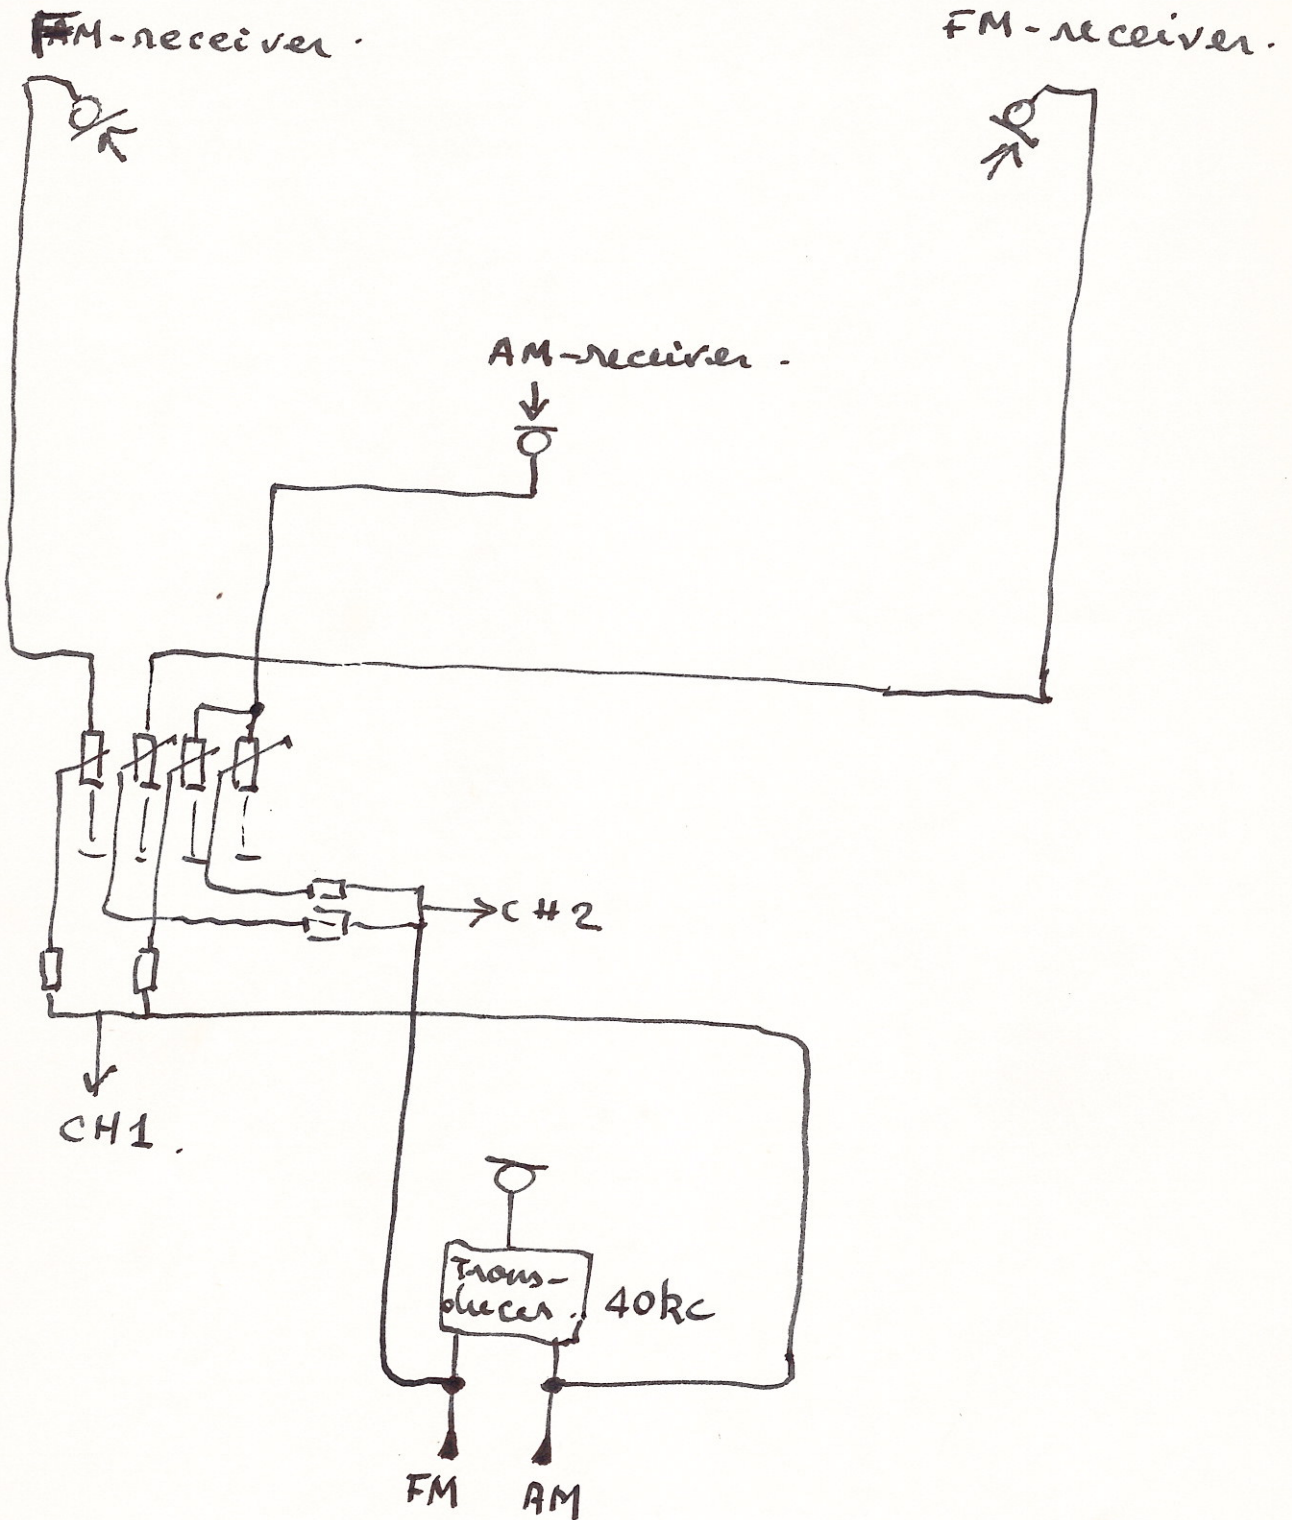 FM-receiver.
FM-receiver.
AM-receiver.
CH2
CH1.
Trans-
ducer.
40kc
FM
AM